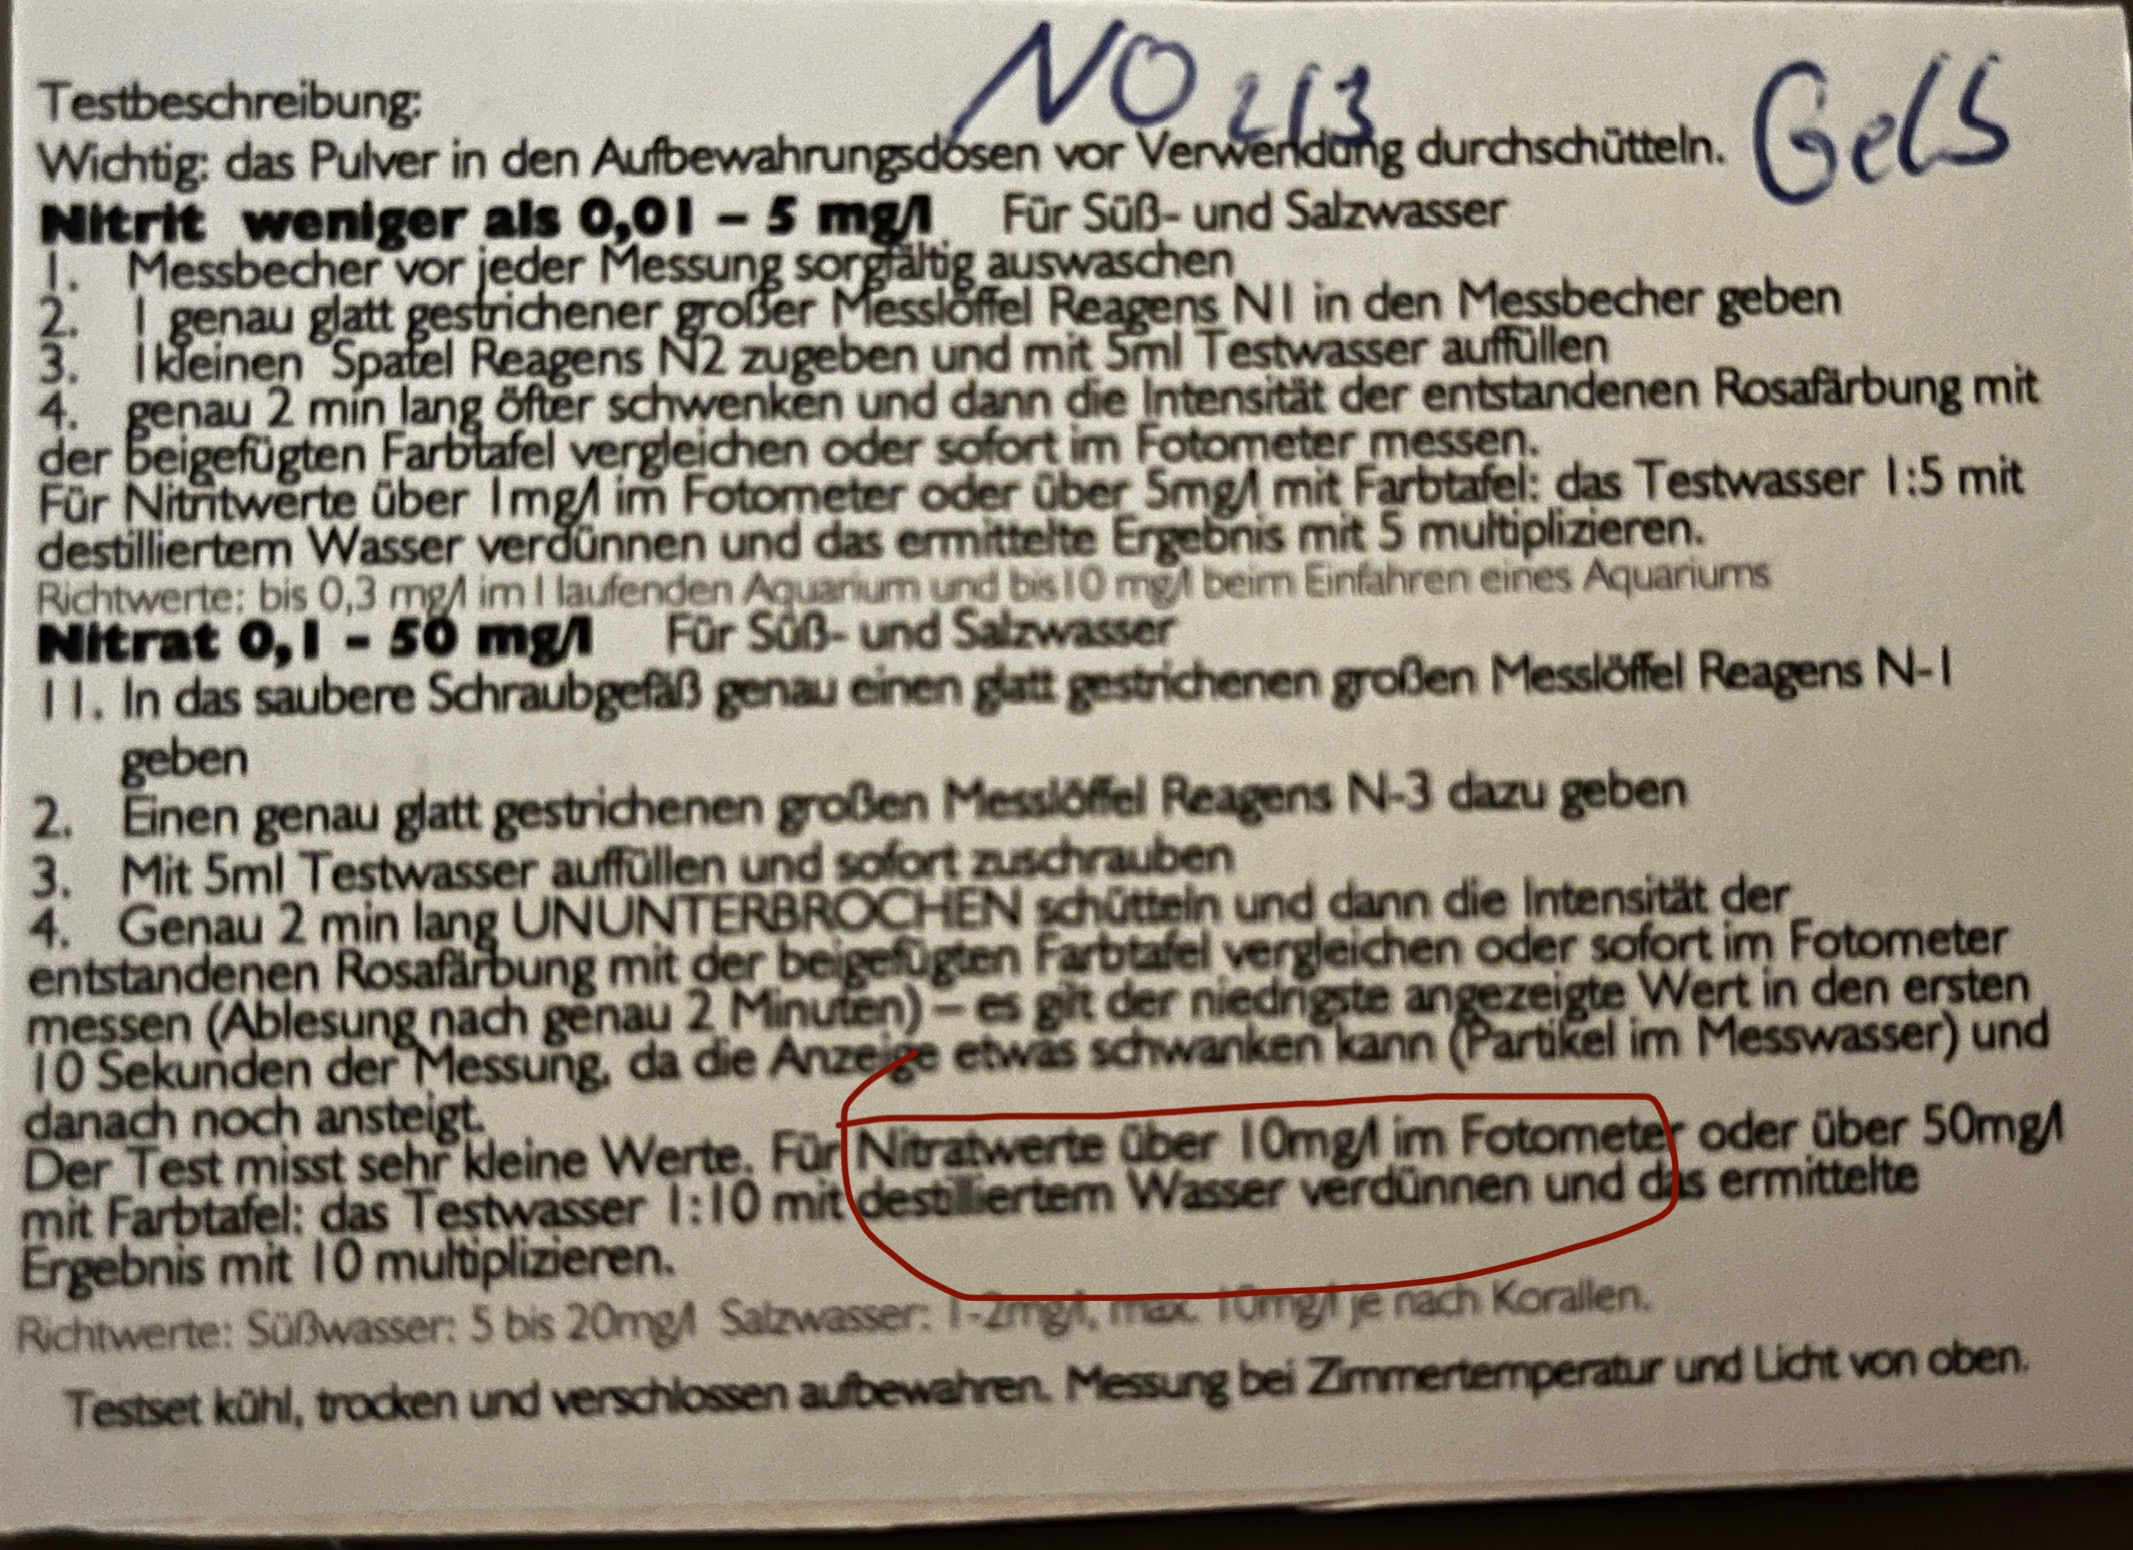 NO 2/3 Gelb
Testbeschreibung:
Wichtig: das Pulver in den Aufbewahrungsdosen vor Verwendung durchschütteln.
Nitrit weniger als 0,01 – 5 mg/l Für Süß- und Salzwasser
1. Messbecher vor jeder Messung sorgfältig auswaschen
2. 1 genau glatt gestrichener großer Messlöffel Reagens N1 in den Messbecher geben
3. 1kleinen Spatel Reagens N2 zugeben und mit 5ml Testwasser auffüllen
4. genau 2 min lang öfter schwenken und dann die Intensität der entstandenen Rosafärbung mit
der beigefügten Farbtafel vergleichen oder sofort im Fotometer messen.
Für Nitritwerte über 1mg/l im Fotometer oder über 5mg/l mit Farbtafel: das Testwasser 1:5 mit
destilliertem Wasser verdünnen und das ermittelte Ergebnis mit 5 multiplizieren.
Richtwerte: bis 0,3 mg/l im l laufenden Aquarium und bis10 mg/l beim Einfahren eines Aquariums
Nitrat 0,1 - 50 mg/l Für Süß- und Salzwasser
11. In das saubere Schraubgefäß genau einen glatt gestrichenen großen Messlöffel Reagens N-1
geben
2. Einen genau glatt gestrichenen großen Messlöffel Reagens N-3 dazu geben
3. Mit 5ml Testwasser auffüllen und sofort zuschrauben
4. Genau 2 min lang UNUNTERBROCHEN schütteln und dann die Intensität der
entstandenen Rosafärbung mit der beigefügten Farbtafel vergleichen oder sofort im Fotometer
messen (Ablesung nach genau 2 Minuten) – es gilt der niedrigste angezeigte Wert in den ersten
10 Sekunden der Messung, da die Anzeige etwas schwanken kann (Partikel im Messwasser) und
danach noch ansteigt.
Der Test misst sehr kleine Werte. Für Nitratwerte über 10mg/l im Fotometer oder über 50mg/l
mit Farbtafel: das Testwasser 1:10 mit destilliertem Wasser verdünnen und das ermittelte
Ergebnis mit 10 multiplizieren.
Richtwerte: Süßwasser: 5 bis 20mg/l Salzwasser: 1-2mg/l, max. 10mg/l je nach Korallen.
Testset kühl, trocken und verschlossen aufbewahren. Messung bei Zimmertemperatur und Licht von oben.